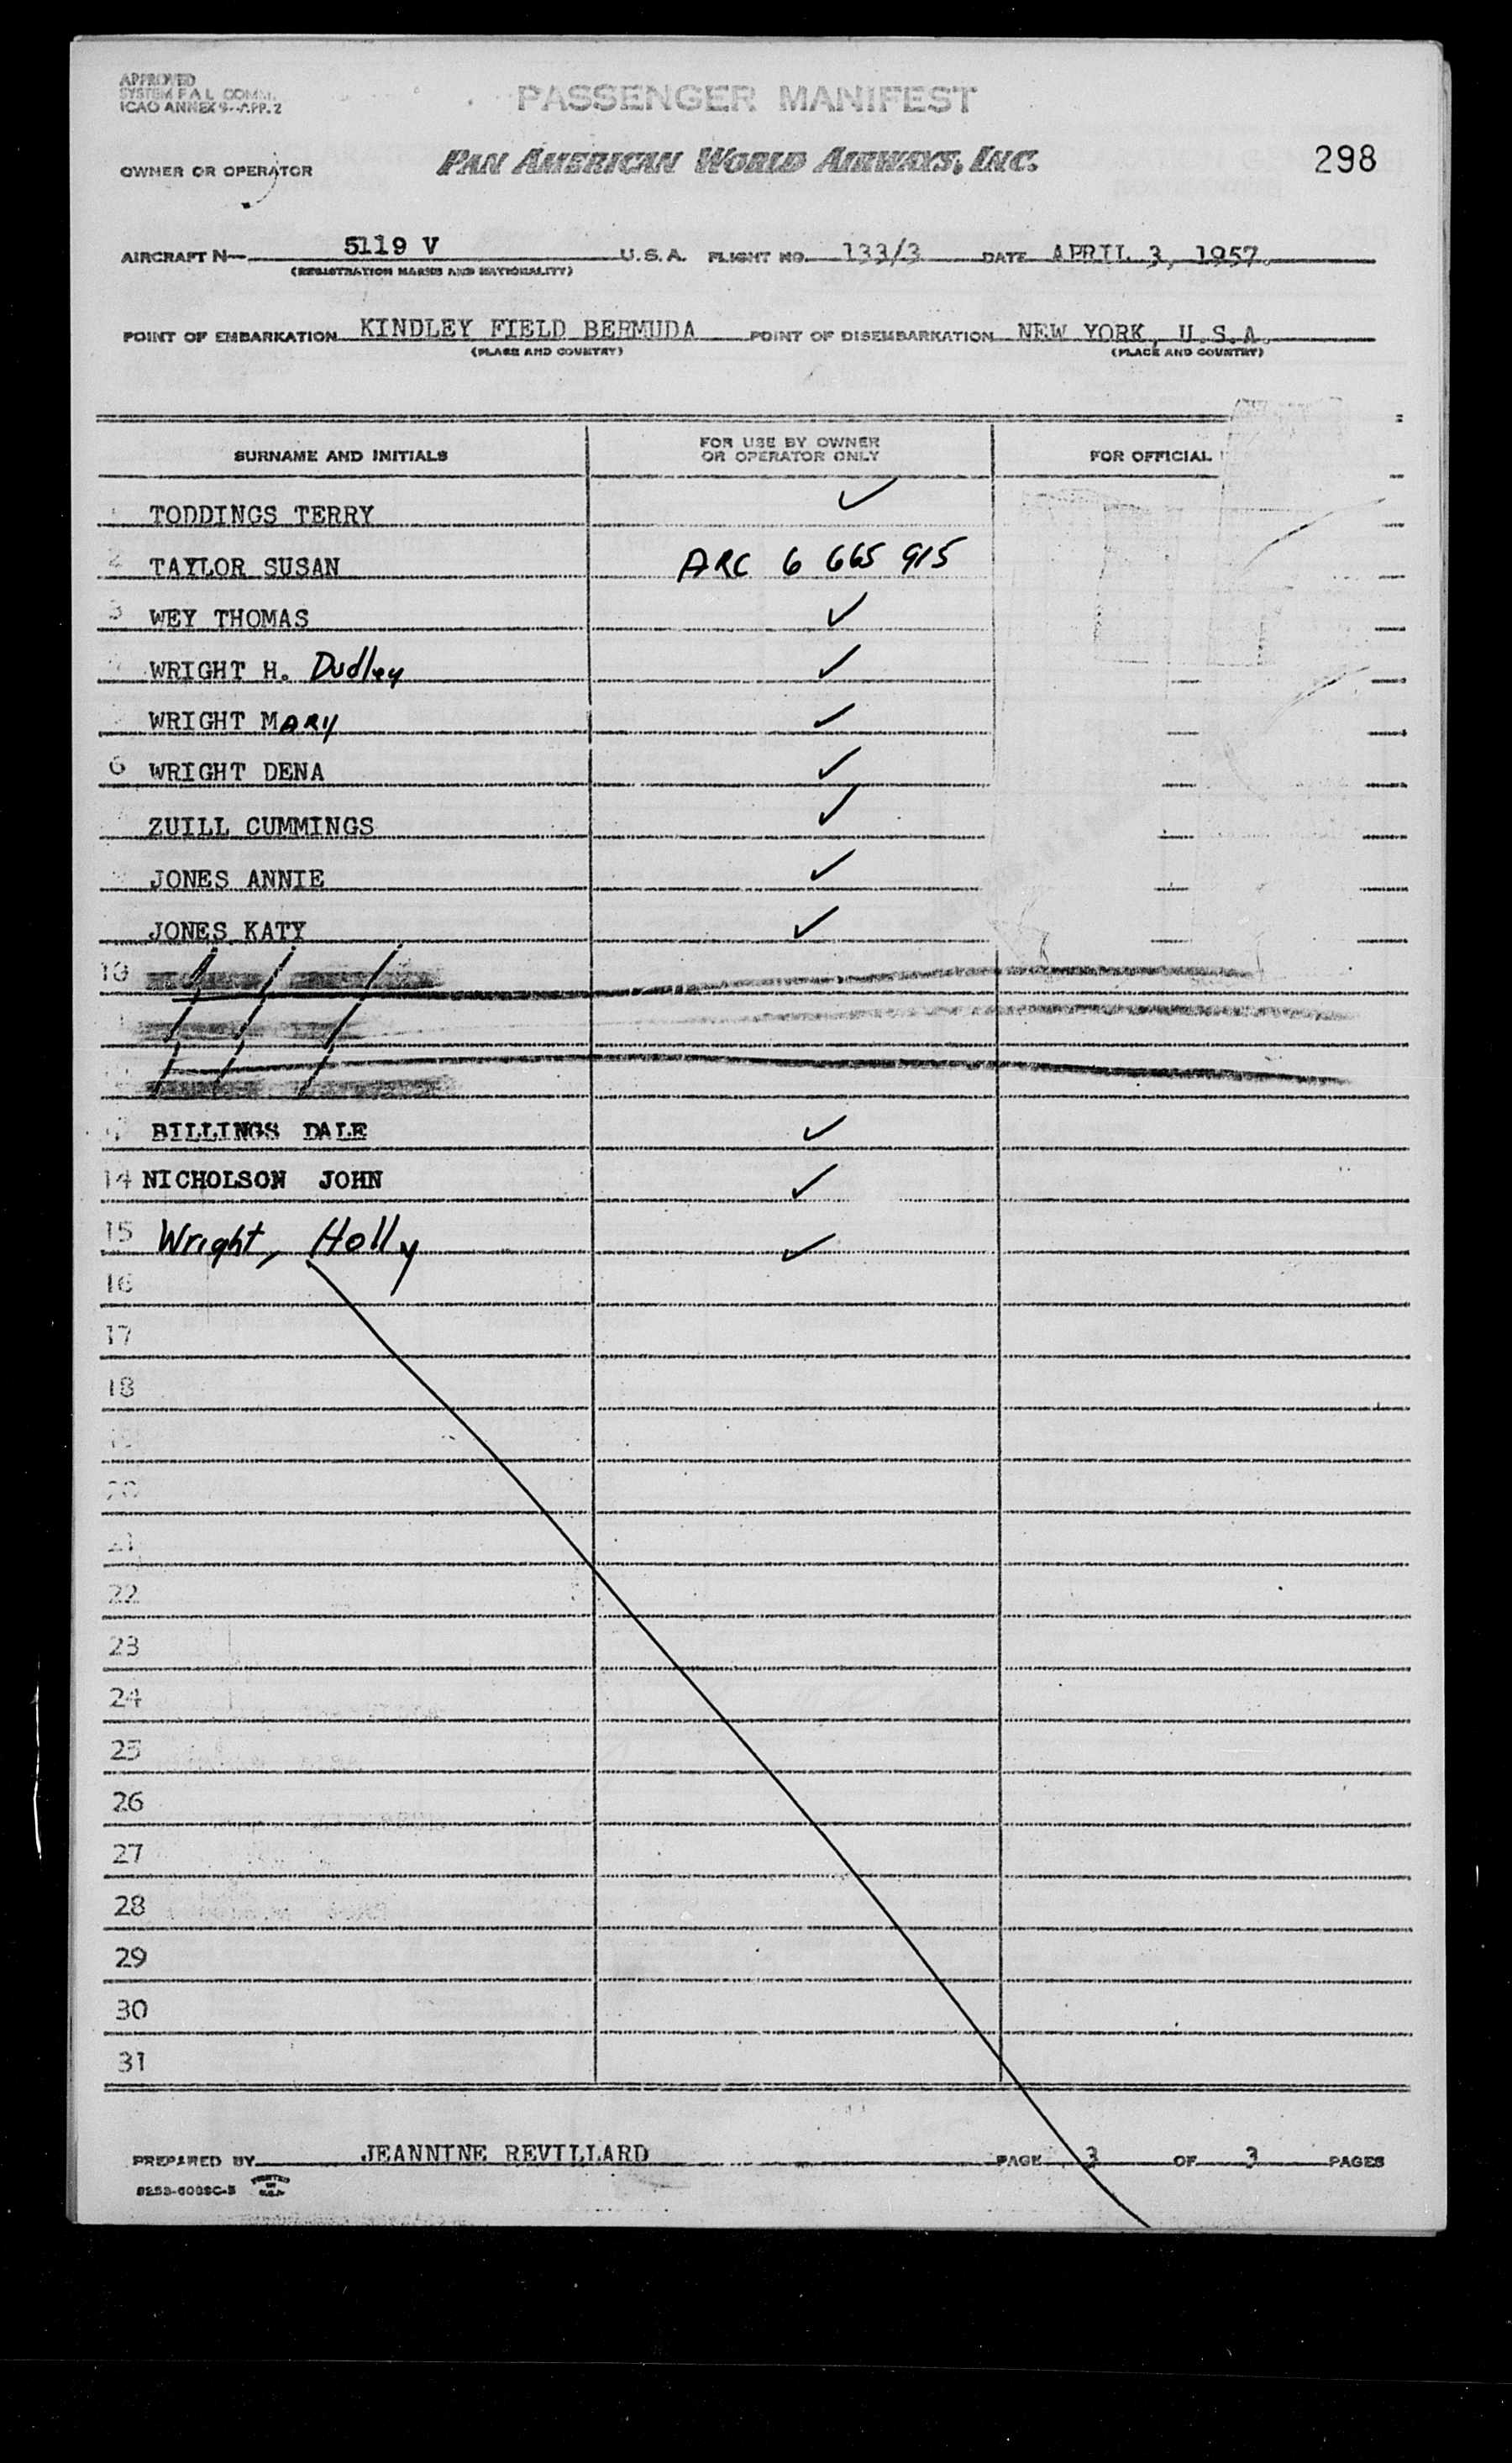 APPROVED
SYSTEM F A L COMM.
ICAO ANNEX 9--APP. 2
PASSENGER MANIFEST
OWNER OR OPERATOR PAN AMERICAN WORLD AIRWAYS, INC. 298
AIRCRAFT N— 5119 V U.S.A. FLIGHT NO. 133/3 DATE APRIL 3, 1957.
(REGISTRATION MARKS AND NATIONALITY)
POINT OF EMBARKATION KINDLEY FIELD BERMUDA POINT OF DISEMBARKATION NEW YORK, U.S.A.
(PLACE AND COUNTRY) (PLACE AND COUNTRY)
SURNAME AND INITIALS FOR USE BY OWNER OR OPERATOR ONLY FOR OFFICIAL
TODDINGS TERRY ✓
2 TAYLOR SUSAN ARC 6 665 915
3 WEY THOMAS ✓
WRIGHT H. Dudley ✓
WRIGHT MARY ✓
6 WRIGHT DENA ✓
ZUILL CUMMINGS ✓
JONES ANNIE ✓
JONES KATY ✓
10
BILLINGS DALE ✓
14 NICHOLSON JOHN ✓
15 Wright, Holly ✓
16
17
18
20
21
22
23
24
25
26
27
28
29
30
31
PREPARED BY JEANNINE REVILLARD PAGE 3 OF 3 PAGES
PRINTED IN U.S.A.